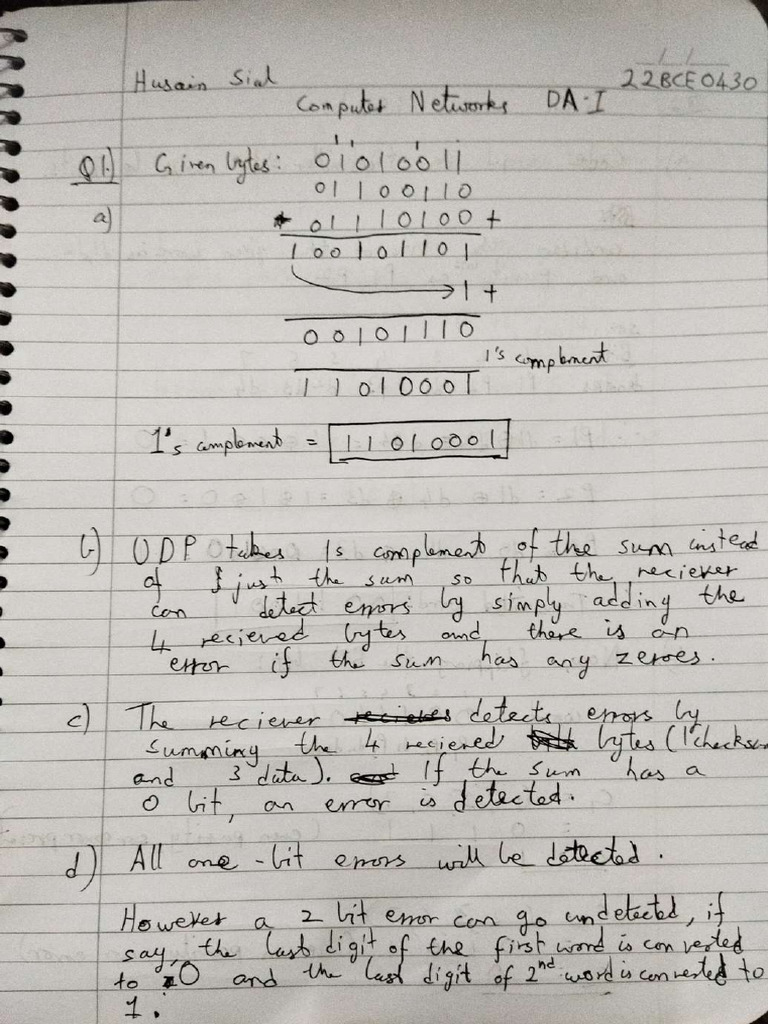 Husain Sial 22BCE0430
Computer Networks DA-I
Q1.) Given bytes: 01010011
01100110
a) 01110100 +
100101101
1 +
00101110
1's complement
11010001
1's complement = 11010001
b) UDP takes 1s complement of the sum instead
of just the sum so that the reciever
can detect errors by simply adding the
4 recieved bytes and there is an
error if the sum has any zeroes.
c) The reciever detects errors by
summing the 4 recieved bytes (1 checksum
and 3 data). If the sum has a
0 bit, an error is detected.
d) All one-bit errors will be detected.
However a 2 bit error can go undetected, if
say, the last digit of the first word is converted
to 0 and the last digit of 2nd word is converted to
1.